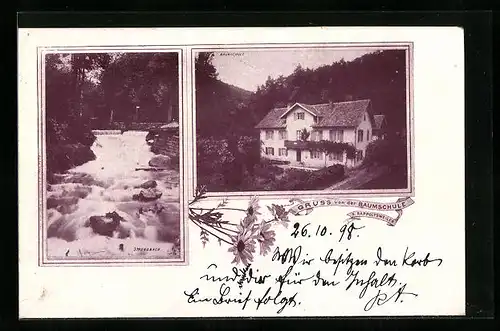 BAUMSCHULE
STRENGBACH
GRUSS von der BAUMSCHULE
b. RAPPOLTSWEILER
26.10.98.
Wir besitzen den Korb
und dir für den Inhalt.
Ein Brief folgt.